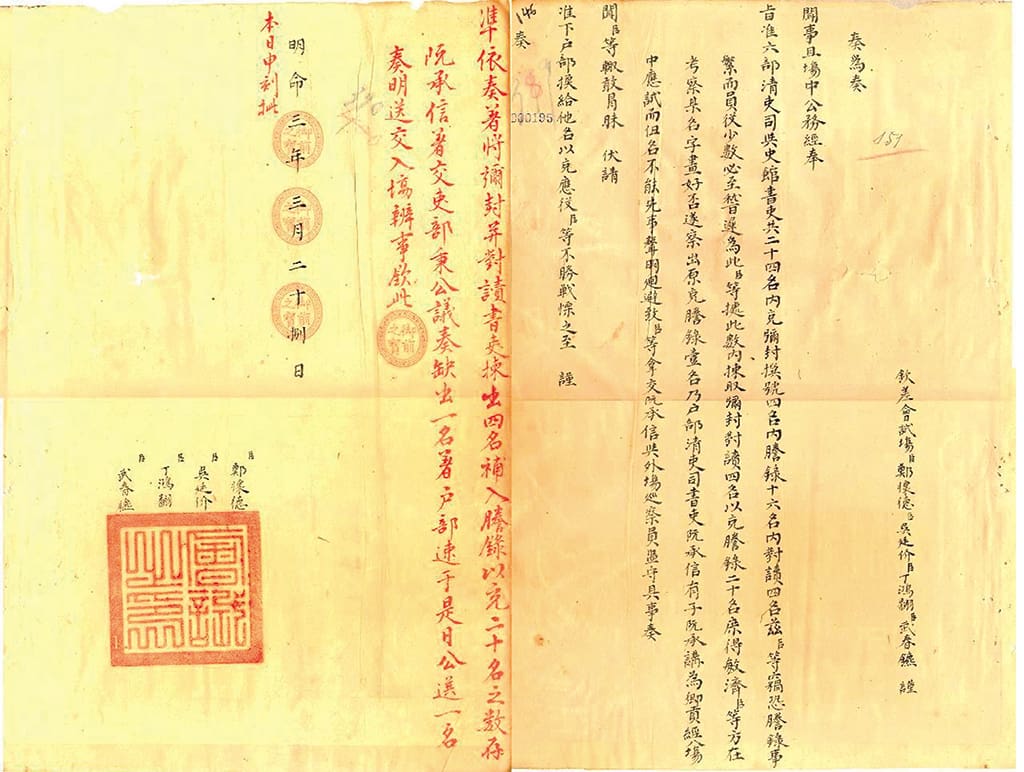 欽差會試場臣鄭㩜德臣吳廷价臣丁鴻翻臣武春 謹
奏為奏
聞事且場中公務經奉
旨准六部清吏司吳史館書吏共二十四名內充彌封撰號四名內謄錄十六名內對讀四名茲臣等竊恐謄錄事
繁而員役少數必至稽遲為此臣等據此數內揀取彌封對讀四名以充謄錄二十名庶得敏濟臣等方在
考察某名字畫好否遂察出原充謄錄壹名乃戶部清吏司書吏阮承信有子阮承講為鄉貢經入場
中應試而但名不能先事聲明廻避致臣等拿交阮承信與外場巡察員監守具事奏
聞臣等輙敢冒昧 伏請
准下戶部換給他名以充應役臣等不勝戰慄之至 謹
奏
146
151
000195
準依奏著將彌封并對讀書吏揀出四名補入謄錄以充二十名之數存
阮承信著交吏部秉公議奏缺出一名著戶部速于是日公送一名
奏明送交入場辦事欽此
御前之寶
明命三年三月二十捌日
本日中刻批
臣鄭㩜德
臣吳廷价
臣丁鴻翻
臣武春
會試之印